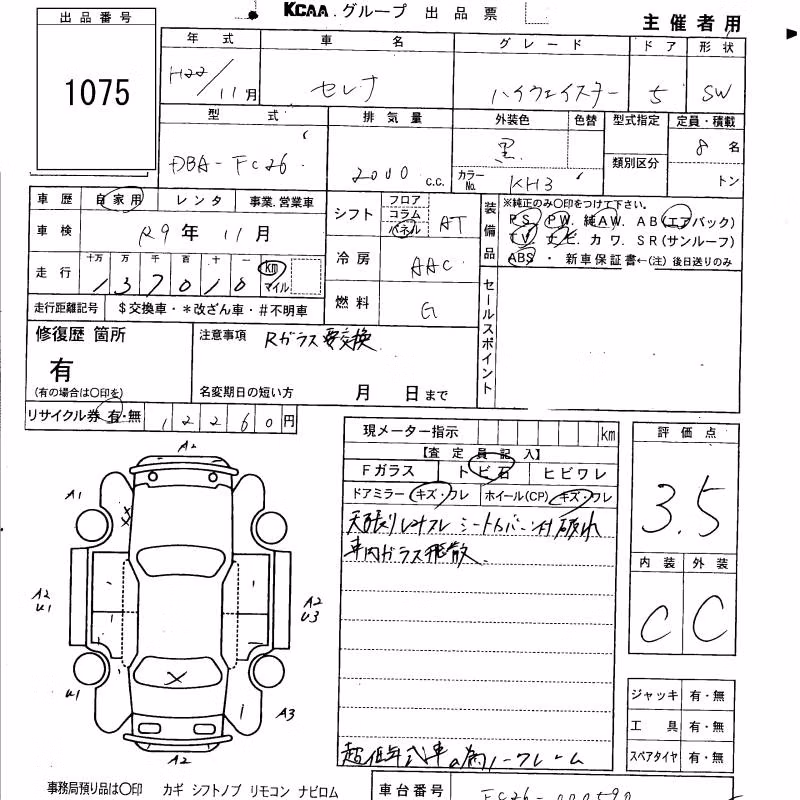 出品番号
1075
KCAA.グループ 出品票
主催者用
年式 車名 グレード ドア 形状
H22/11月 セレナ ハイウェイスター 5 SW
型式 排気量 外装色 色替 型式指定 定員・積載
DBA-FC26 2000 c.c. 黒 8名
カラーNo. KH3 類別区分 トン
車歴 自家用 レンタ 事業.営業車
車検 R9年 11月
走行 十万 万 千 百 十 一
137010 km マイル
走行距離記号 $交換車・*改ざん車・#不明車
シフト フロア コラム パネル AT
冷房 AAC
燃料 G
装備品 ※純正のみ〇印をつけて下さい。
PS. PW. 純AW. AB(エアバック)
TV. ナビ カワ. SR(サンルーフ)
ABS ・ 新車保証書←(注)後日送りのみ
セールスポイント
修復歴 箇所
有
(有の場合は〇印を)
注意事項 Rガラス要交換
名変期日の短い方 月 日まで
リサイクル券 有・無 12260円
現メーター指示 km
【査定員記入】
Fガラス トビ石 ヒビワレ
ドアミラー キズ・ワレ ホイール(CP) キズ・ワレ
天張りレナフレ シートカバー付 破れ
車内ガラス飛散
超低年式車の為ノークレーム
評価点
3.5
内装 外装
C C
ジャッキ 有・無
工具 有・無
スペアタイヤ 有・無
A2
A1
A2
U1
A2
U3
U1
A3
A2
事務局預り品は〇印 カギ シフトノブ リモコン ナビロム
車台番号 FC26-